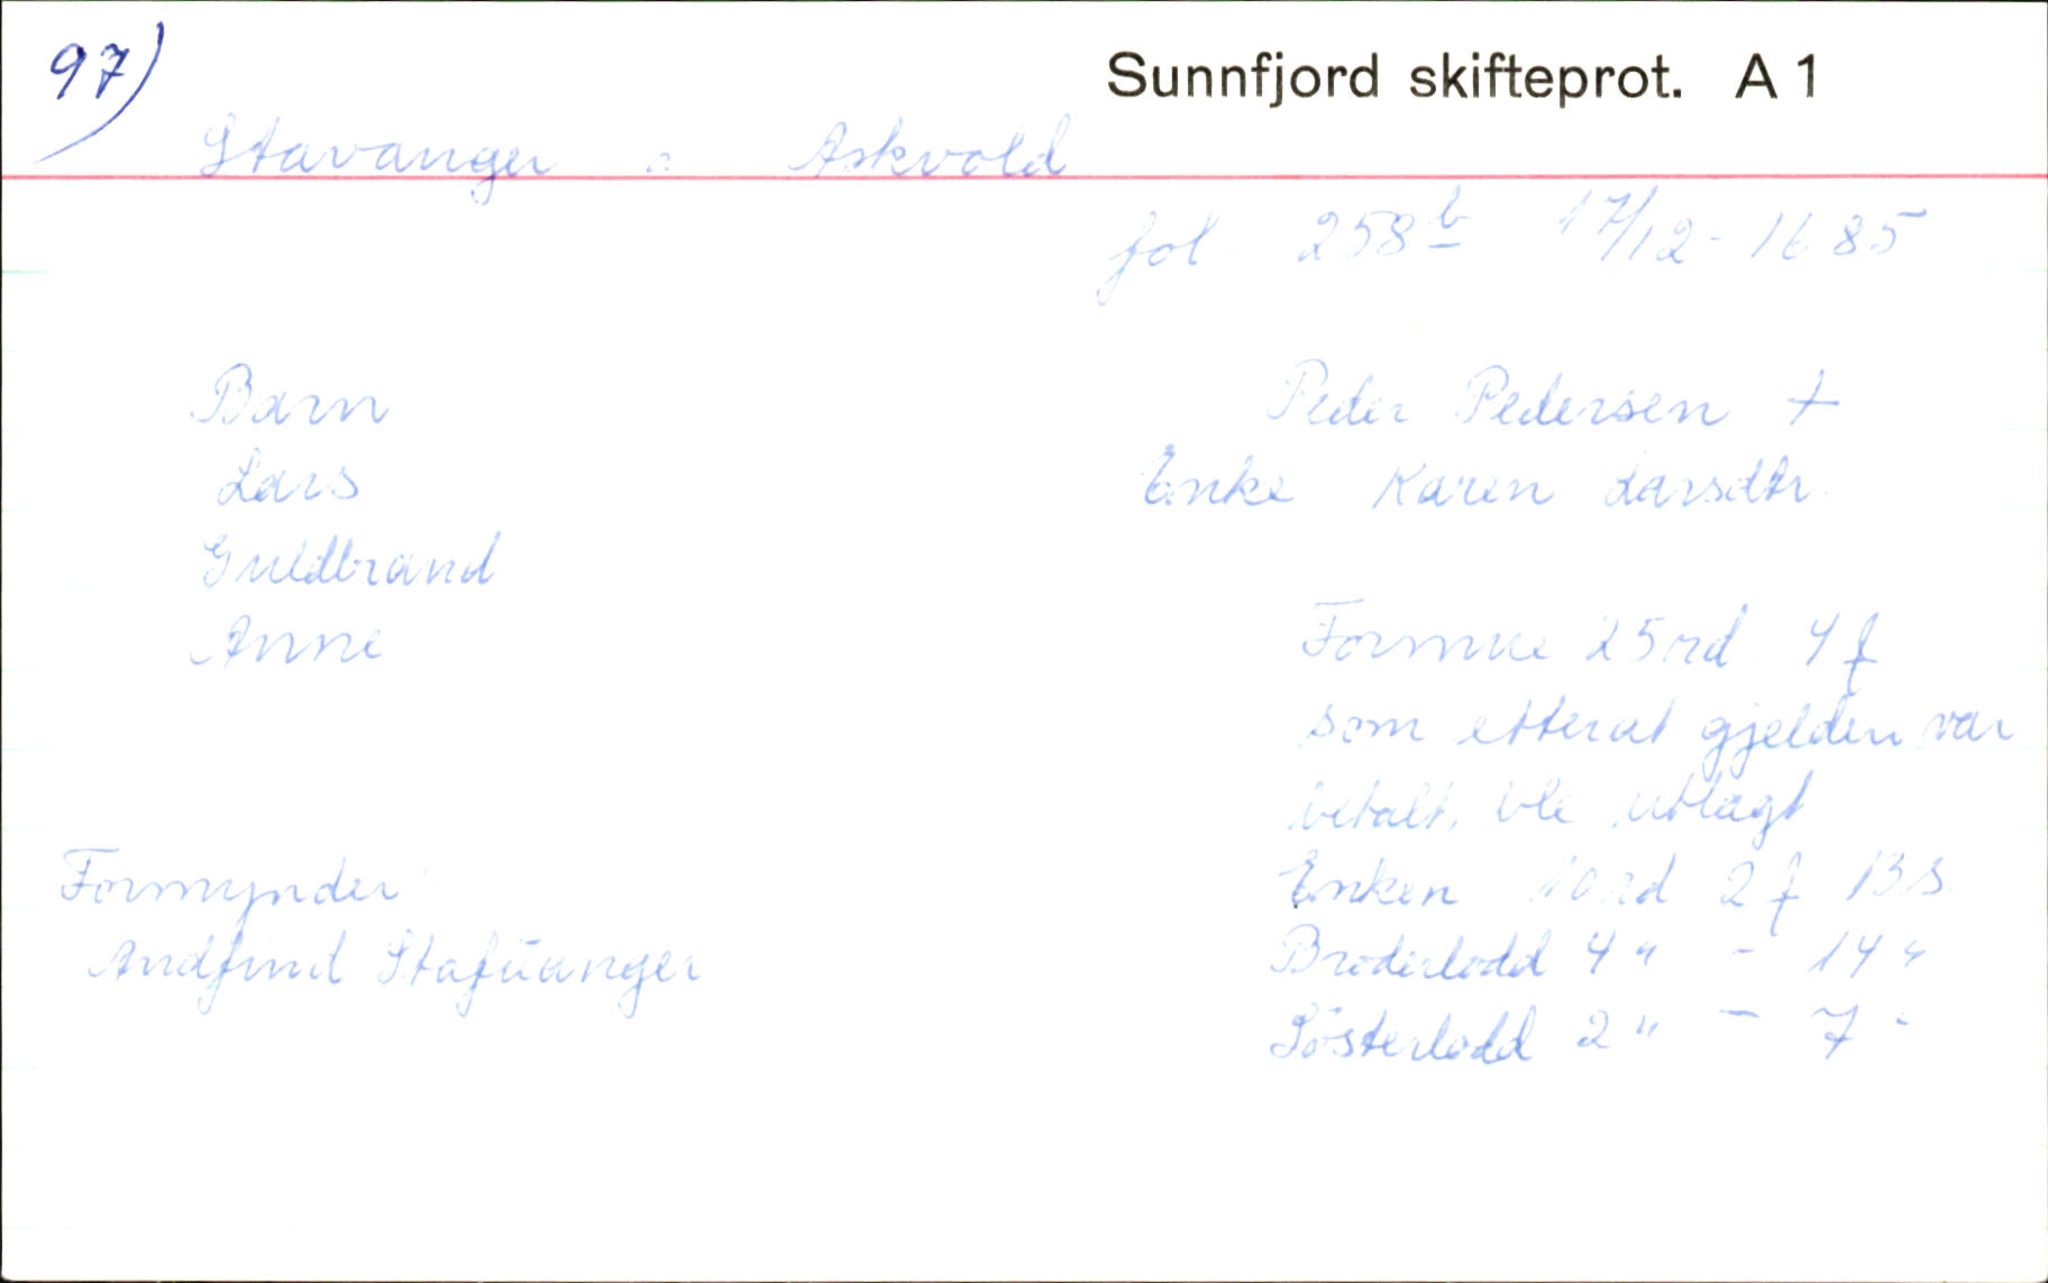 97)
Sunnfjord skifteprot. A 1
Stavanger Askvold
fol. 258b 17/12-1685
Barn
Lars
Guldbrand
Anne
Formynder
Andfind Stafüanger
Peder Pedersen +
Enke Karen Larsdtr.
Formue 25 rd 4 f
som etterat gjelden var
betalt, ble utlagt
Enken 10 rd 2 f 13 s
Broderlodd 4 " - 14 "
Sösterlodd 2 " - 7 "